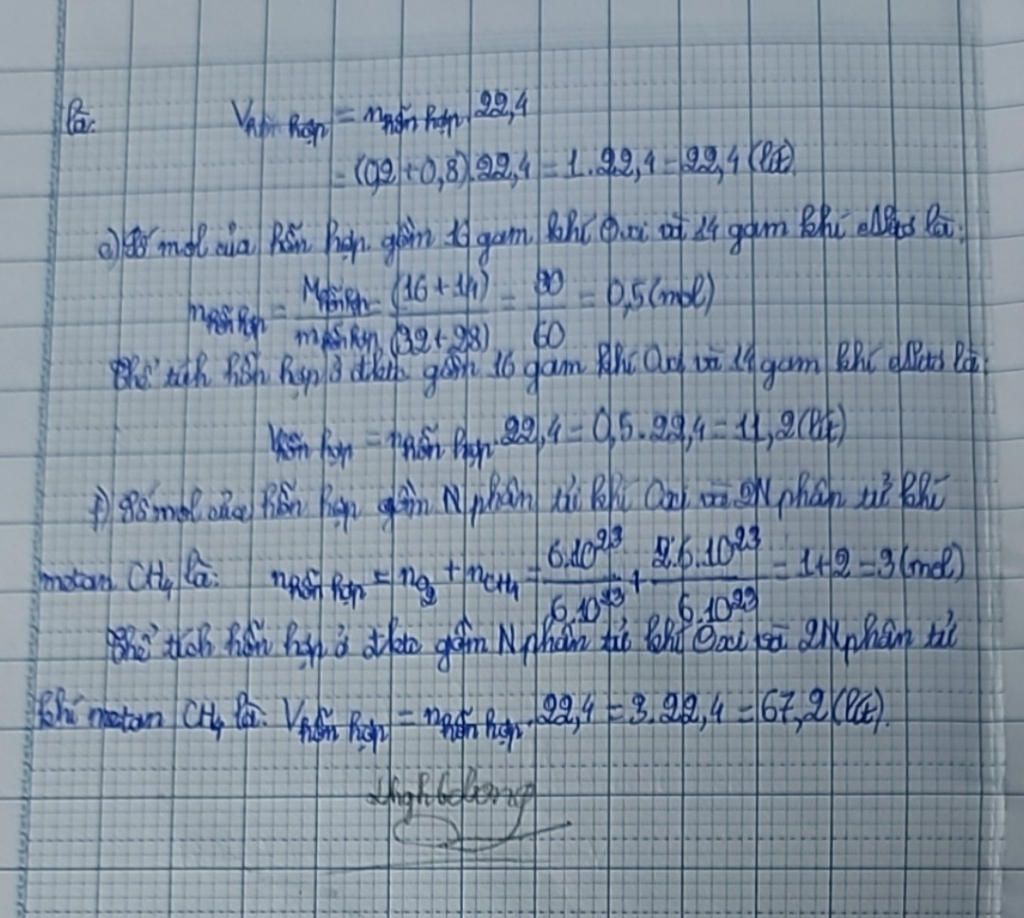 là: V hỗn hợp = n hỗn hợp . 22,4
= (0,2 + 0,8) . 22,4 = 1 . 22,4 = 22,4 (lít)
e) Số mol của hỗn hợp gồm 16 gam khí Oxi và 14 gam khí Nitơ là:
n hỗn hợp = M hỗn hợp / m hỗn hợp = (16 + 14) / (32 + 28) = 30 / 60 = 0,5 (mol)
Thể tích hỗn hợp ở đktc gồm 16 gam khí Oxi và 14 gam khí Nitơ là:
V hỗn hợp = n hỗn hợp . 22,4 = 0,5 . 22,4 = 11,2 (lít)
f) Số mol của hỗn hợp gồm N phân tử khí Oxi và 2N phân tử khí
metan CH4 là: n hỗn hợp = n + nCH4 = 6.10^23 / 6.10^23 + 2.6.10^23 / 6.10^23 = 1 + 2 = 3 (mol)
Thể tích hỗn hợp ở đktc gồm N phân tử khí Oxi và 2N phân tử
khí metan CH4 là: V hỗn hợp = n hỗn hợp . 22,4 = 3 . 22,4 = 67,2 (lít).